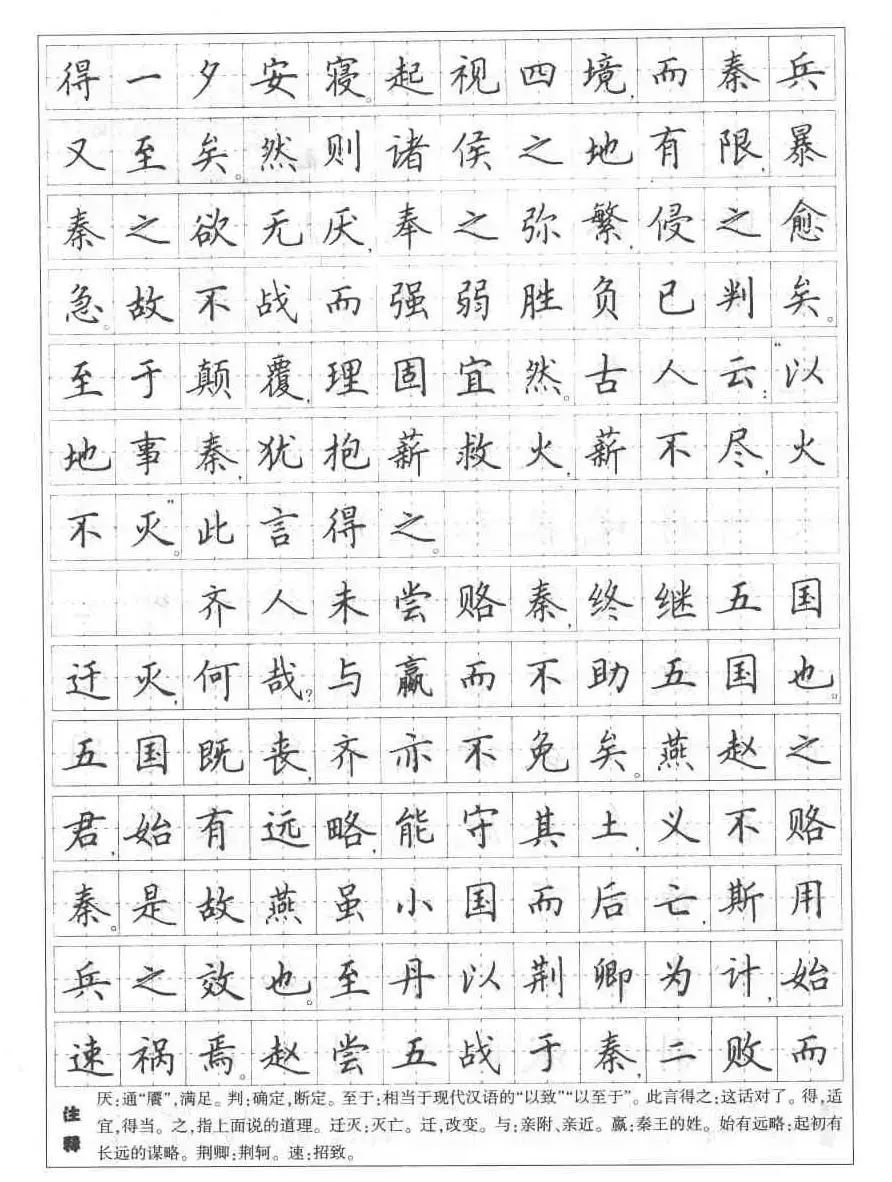 得一夕安寝。起视四境,而秦兵
又至矣。然则诸侯之地有限,暴
秦之欲无厌,奉之弥繁,侵之愈
急。故不战而强弱胜负已判矣。
至于颠覆,理固宜然。古人云:“以
地事秦,犹抱薪救火,薪不尽,火
不灭”。此言得之。
齐人未尝赂秦,终继五国
迁灭,何哉?与嬴而不助五国也。
五国既丧,齐亦不免矣。燕赵之
君,始有远略,能守其土,义不赂
秦。是故燕虽小国而后亡,斯用
兵之效也。至丹以荆卿为计,始
速祸焉。赵尝五战于秦,二败而
注释
厌:通“餍”,满足。判:确定,断定。至于:相当于现代汉语的“以致”“以至于”。此言得之:这话对了。得,适
宜,得当。之,指上面说的道理。迁灭:灭亡。迁,改变。与:亲附、亲近。嬴:秦王的姓。始有远略:起初有
长远的谋略。荆卿:荆轲。速:招致。